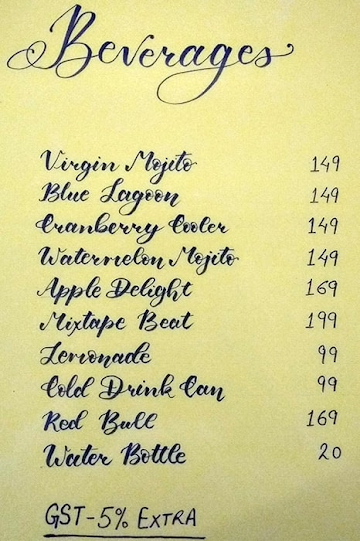 Beverages
Virgin Mojito 149
Blue Lagoon 149
Cranberry Cooler 149
Watermelon Mojito 149
Apple Delight 169
Mixtape Beat 199
Lemonade 99
Cold Drink Can 99
Red Bull 169
Water Bottle 20
GST-5% EXTRA